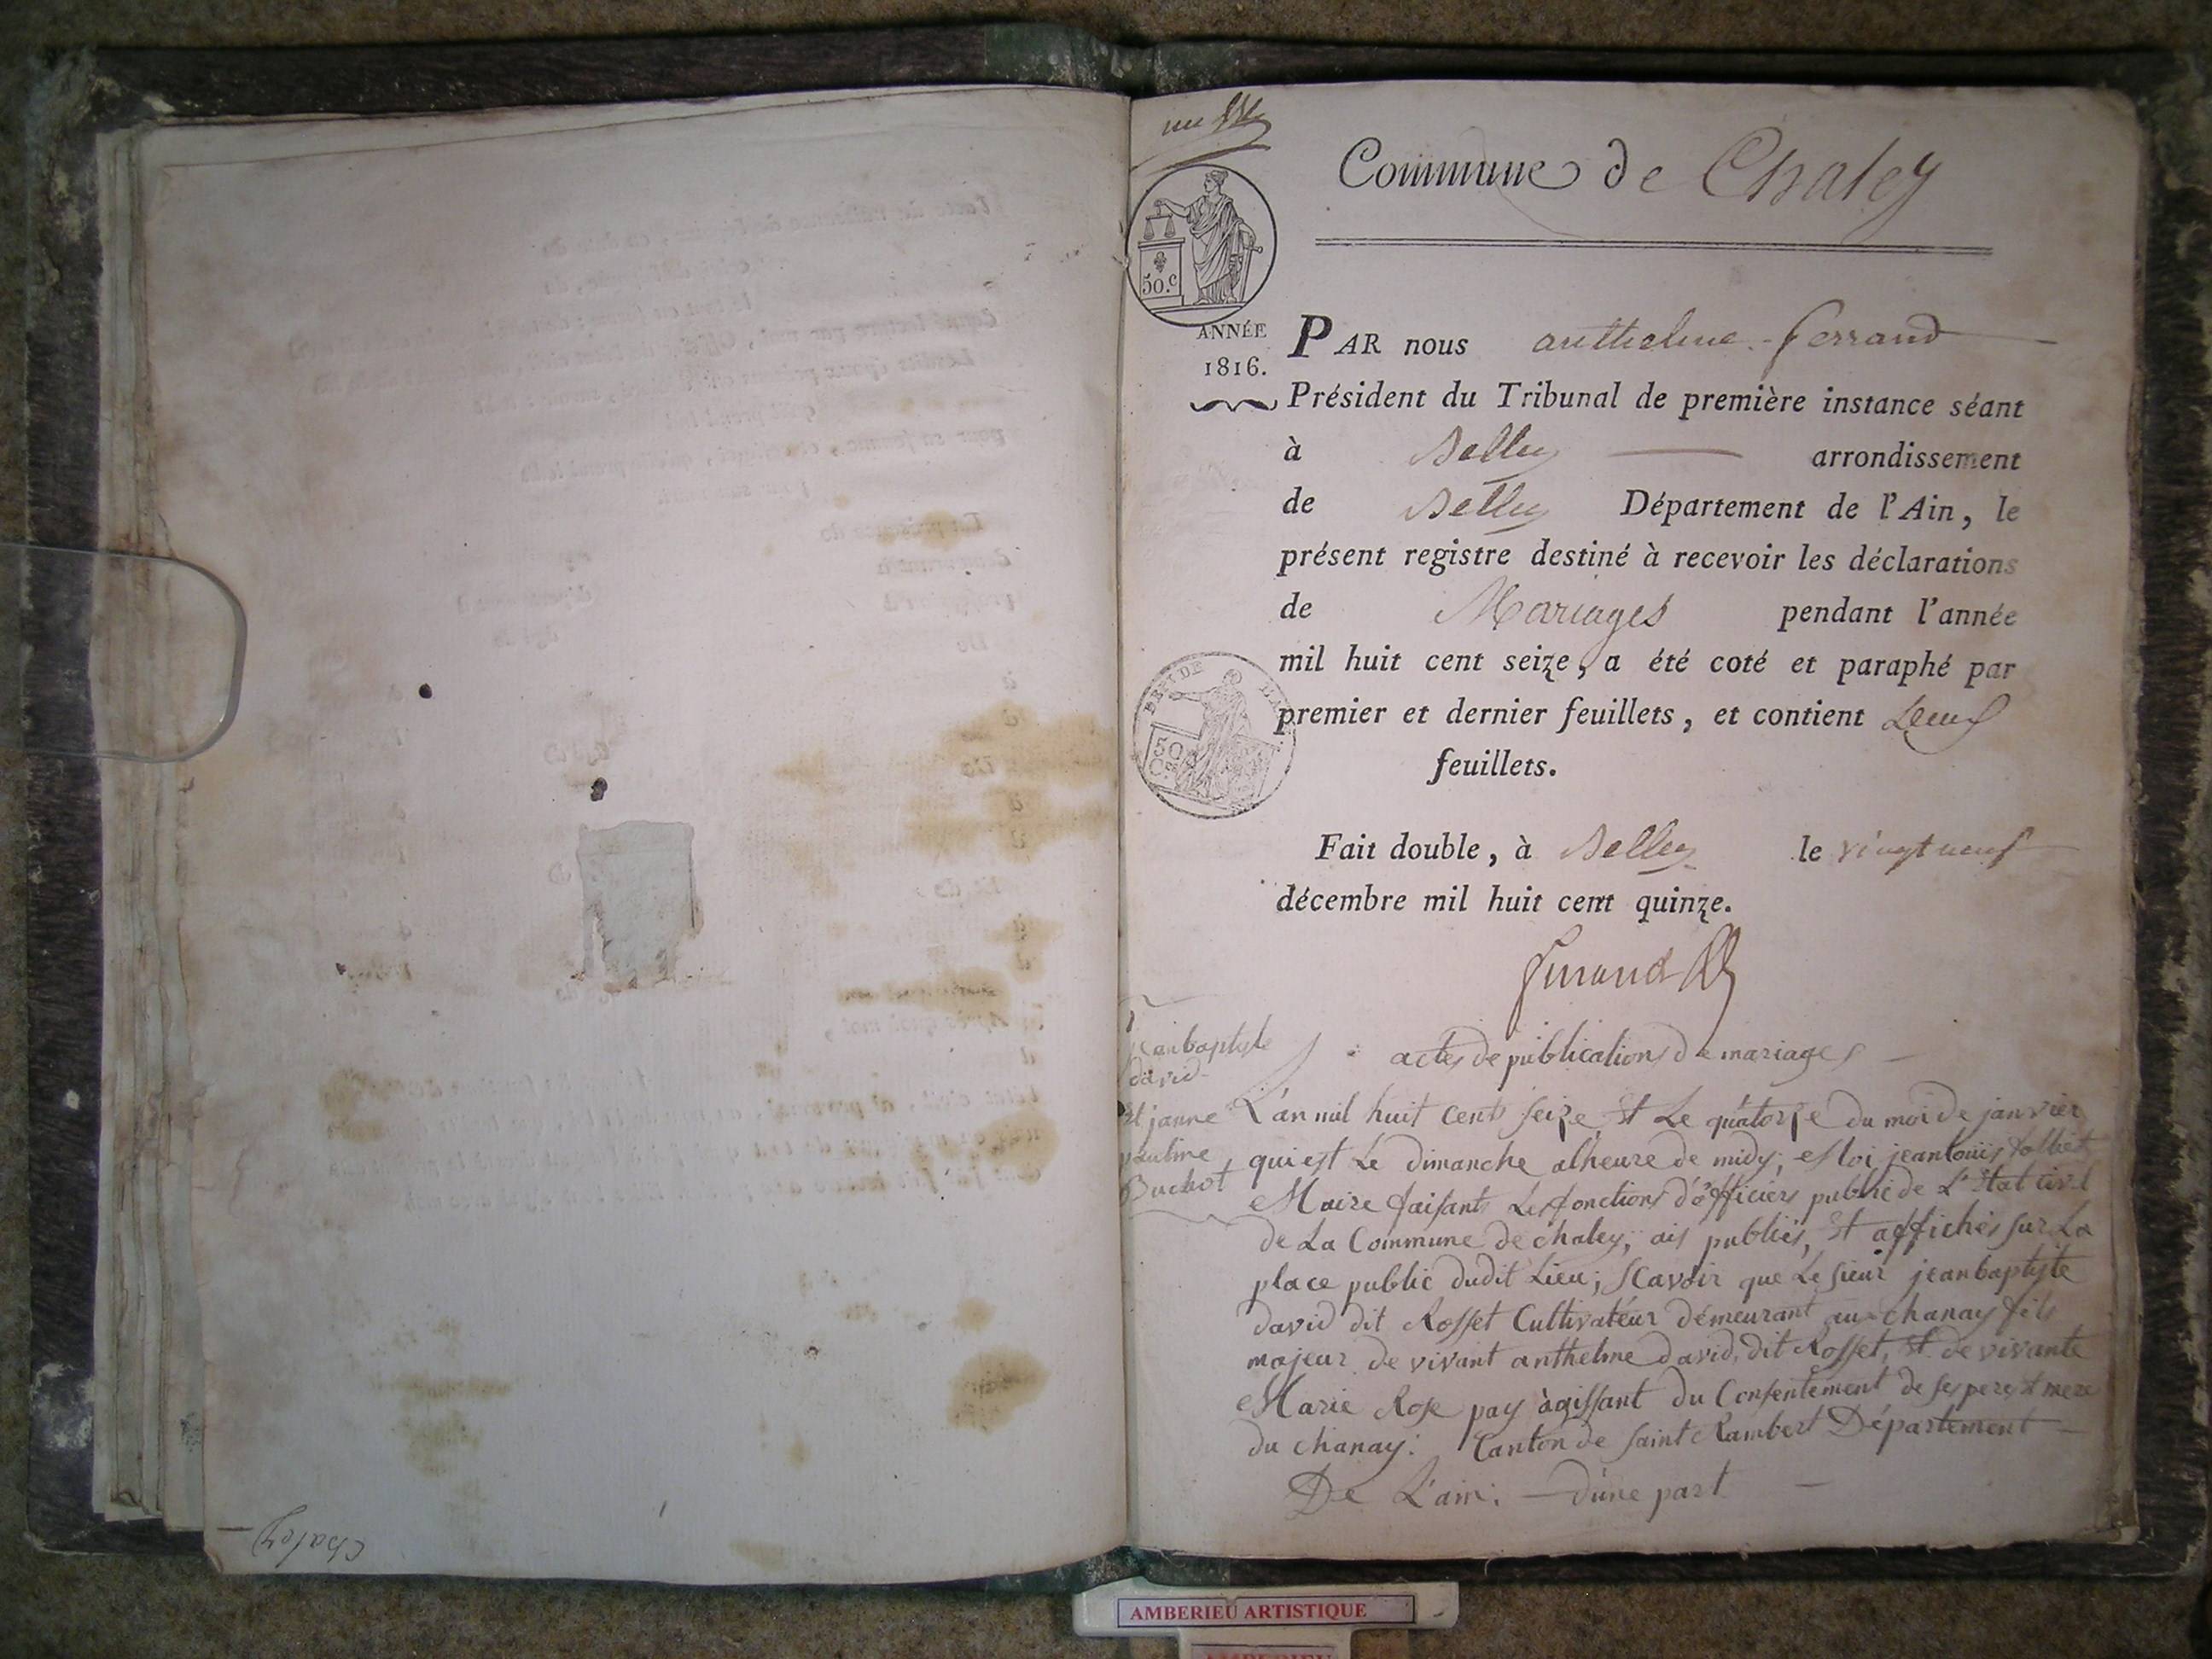 Commune de Chaley
50.c
ANNÉE
1816.
PAR nous anthelme ferrand
Président du Tribunal de première instance séant
à Belley arrondissement
de Belley Département de l'Ain, le
présent registre destiné à recevoir les déclarations
de Mariages pendant l'année
mil huit cent seize, a été coté et paraphé par
premier et dernier feuillets, et contient
feuillets.
50
C.
Fait double, à Belley le vingt neuf
décembre mil huit cent quinze.
jeanbaptiste
david
Et janne
pauline
Buchot
actes de publications de mariages
L'an mil huit cents seize Et Le quatorze du moi de janvier
qui est Le dimanche alheure de midy; Moi jeanlouis
Maire faisants Les fonctions d'officiers public de L'Etat civil
de La Commune de chaley, ais publiés, Et affichés sur La
place public dudit Lieu; scavoir que Le sieur jeanbaptiste
david dit Rosset Cultivateur démeurant au chanay fils
majeur de vivant anthelme david, dit Rosset, Et de vivante
Marie Rose pay àgissant du Consentement de ses pere Et mere
du chanay: Canton de saint Rambert Département
De L'ain. d'une part
Chaley
AMBERIEU ARTISTIQUE
AMBERIEU